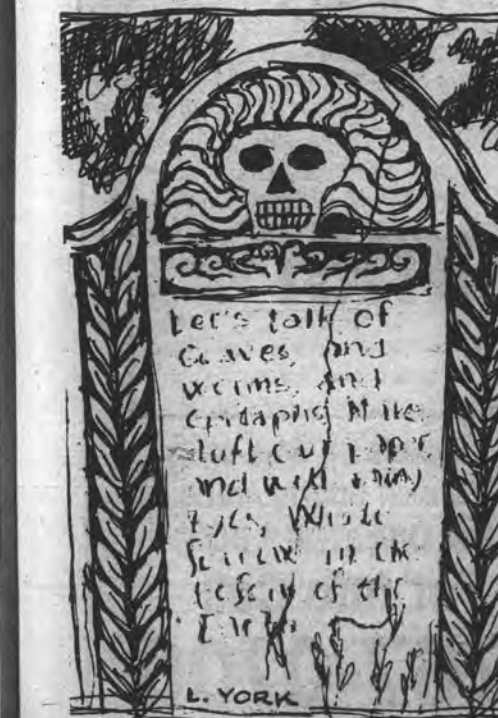 Let's talk of
Graves, and
worms, and
epitaphs; Make
dust our paper
and with rainy
eyes, Write
sorrow in the
bosom of the
Earth
L. YORK